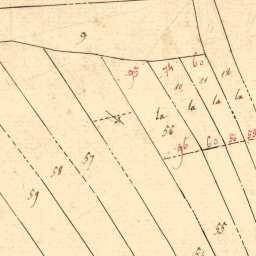 9
60
74
95
12
11
10
la
la
la
la
56
53
56
60
96
57
58
59
55
54